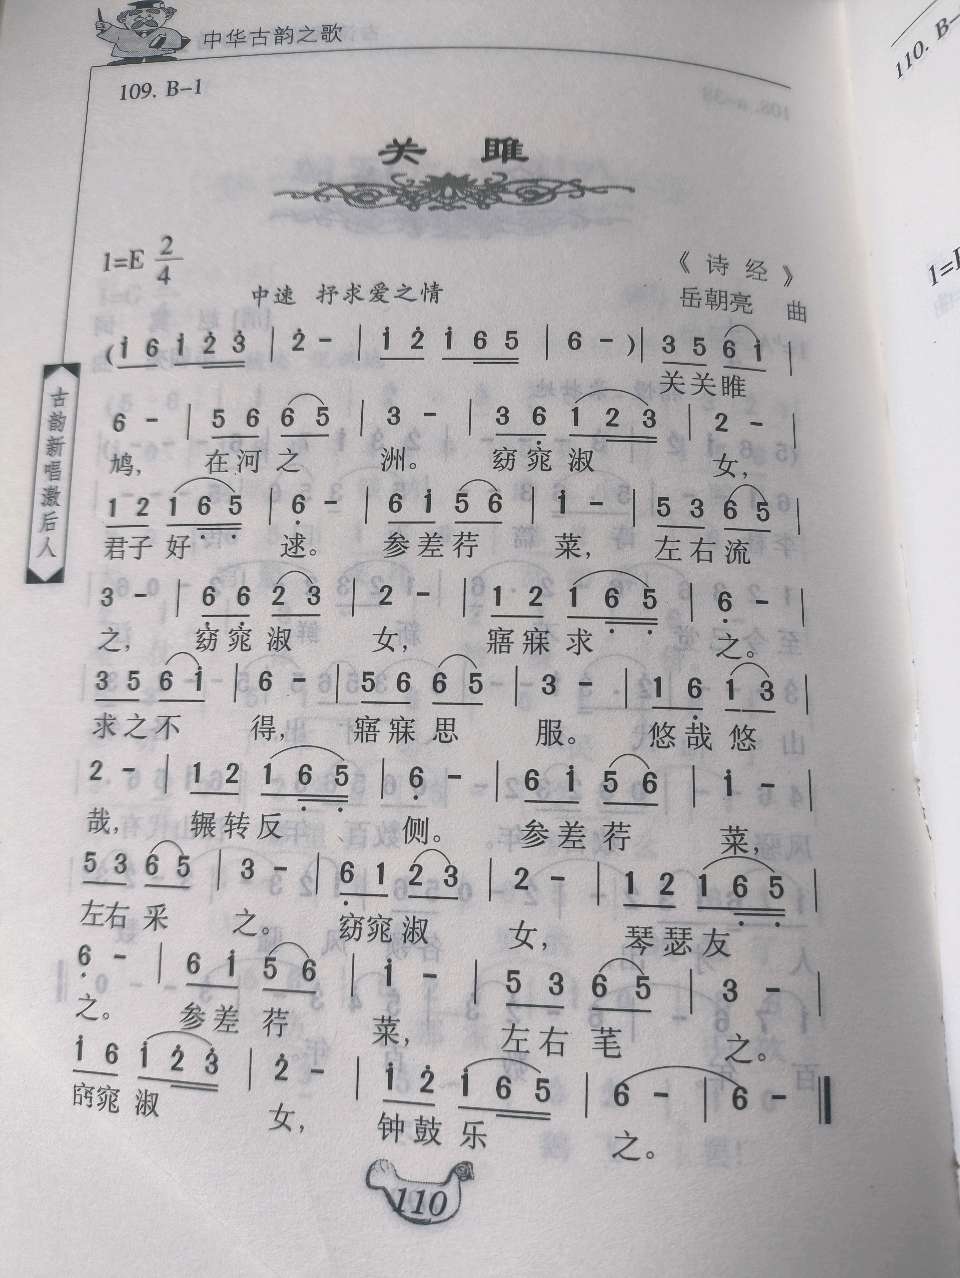 中华古韵之歌
109. B-1
110. B-
关 雎
1=E 2/4
《诗经》
中速 抒求爱之情
岳朝亮 曲
(i 6 i 2̇ 3̇ | 2̇ - | i 2̇ i 6 5 | 6 - ) | 3 5 6 i |
关关雎
6 - | 5 6 6 5 | 3 - | 3 6̣ 1 2 3 | 2 - |
鸠, 在河之 洲。 窈窕淑 女,
1 2 1 6̣ 5̣ | 6̣ - | 6 i 5 6 | i - | 5 3 6 5 |
君子好 逑。 参差荇 菜, 左右流
3 - | 6̣ 6̣ 2 3 | 2 - | 1 2 1 6̣ 5̣ | 6̣ - |
之, 窈窕淑 女, 寤寐求 之。
3 5 6 i | 6 - | 5 6 6 5 | 3 - | 1 6̣ 1 3 |
求之不 得, 寤寐思 服。 悠哉悠
2 - | 1 2 1 6̣ 5̣ | 6̣ - | 6 i 5 6 | i - |
哉, 辗转反 侧。 参差荇 菜,
5 3 6 5 | 3 - | 6̣ 1 2 3 | 2 - | 1 2 1 6̣ 5̣ |
左右采 之。 窈窕淑 女, 琴瑟友
6̣ - | 6 i 5 6 | i - | 5 3 6 5 | 3 - |
之。 参差荇 菜, 左右芼 之。
i 6 i 2̇ 3̇ | 2̇ - | i 2̇ i 6 5 | 6 - | 6 - ‖
窈窕淑 女, 钟鼓乐 之。
古韵新唱激后人
110